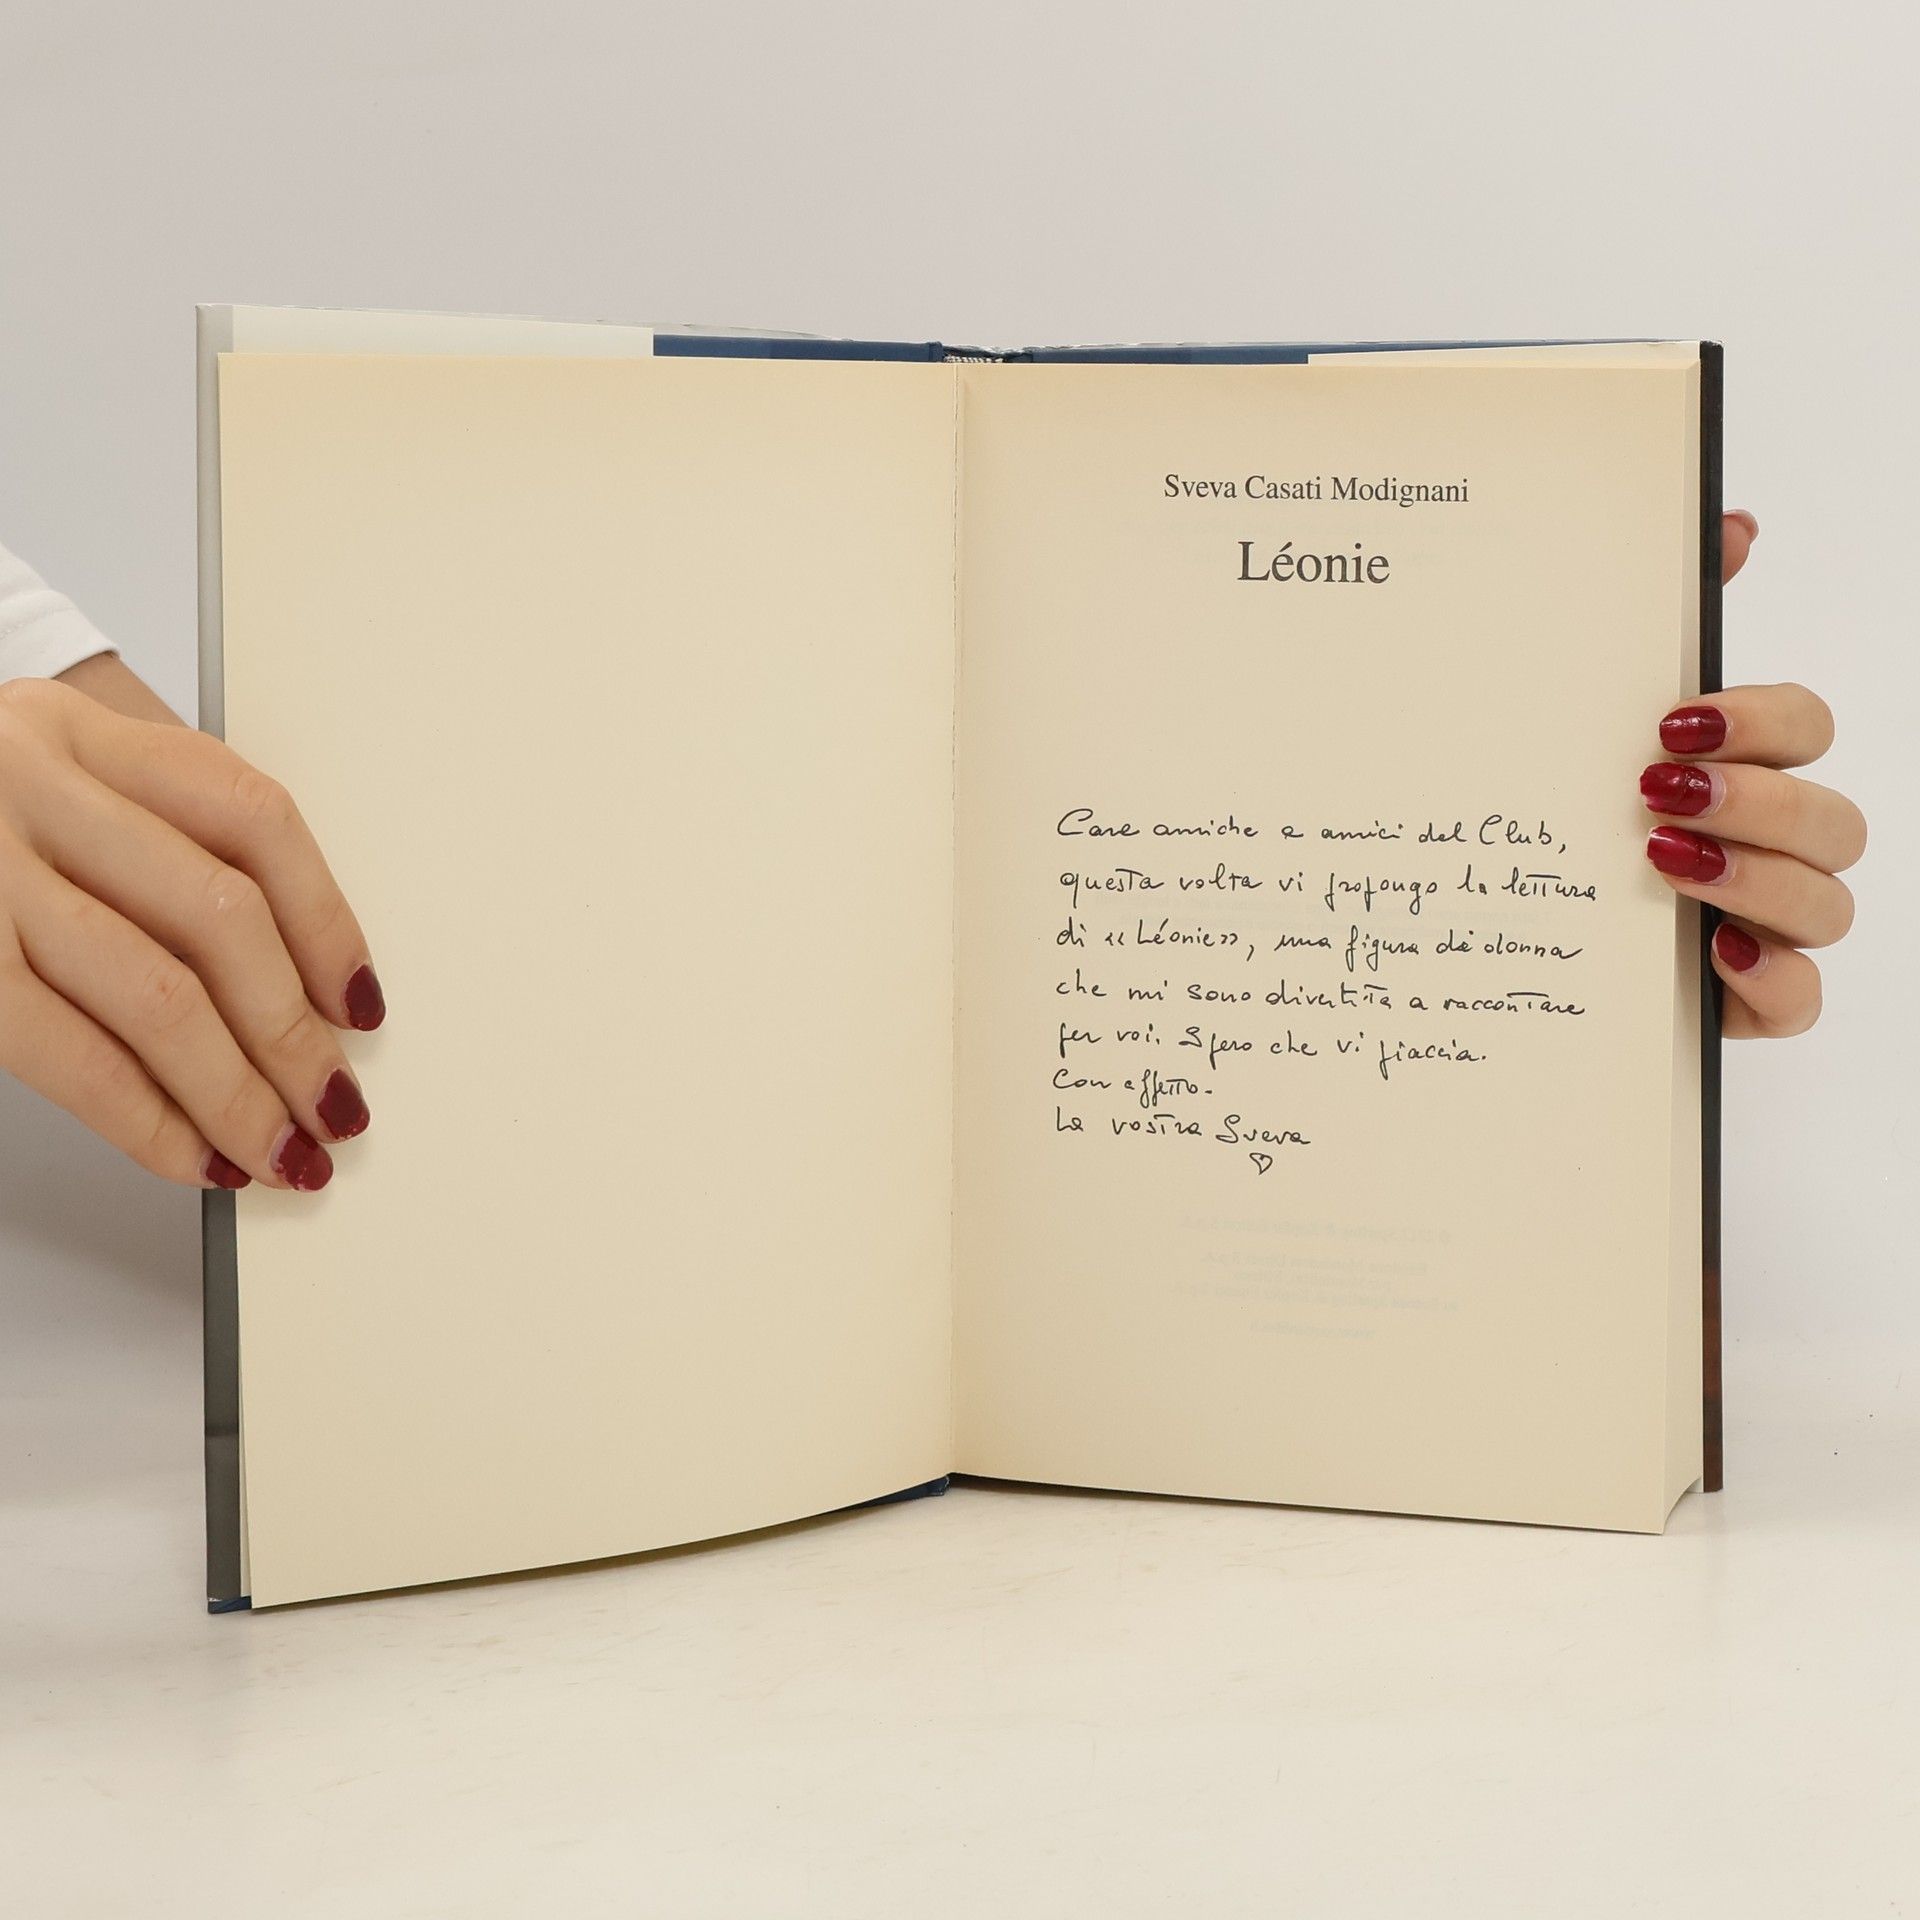 Sveva Casati Modignani
Léonie
Care amiche e amici del Club,
questa volta vi propongo la lettura
di «Léonie», una figura di donna
che mi sono divertita a raccontare
per voi. Spero che vi piaccia.
Con affetto.
La vostra Sveva